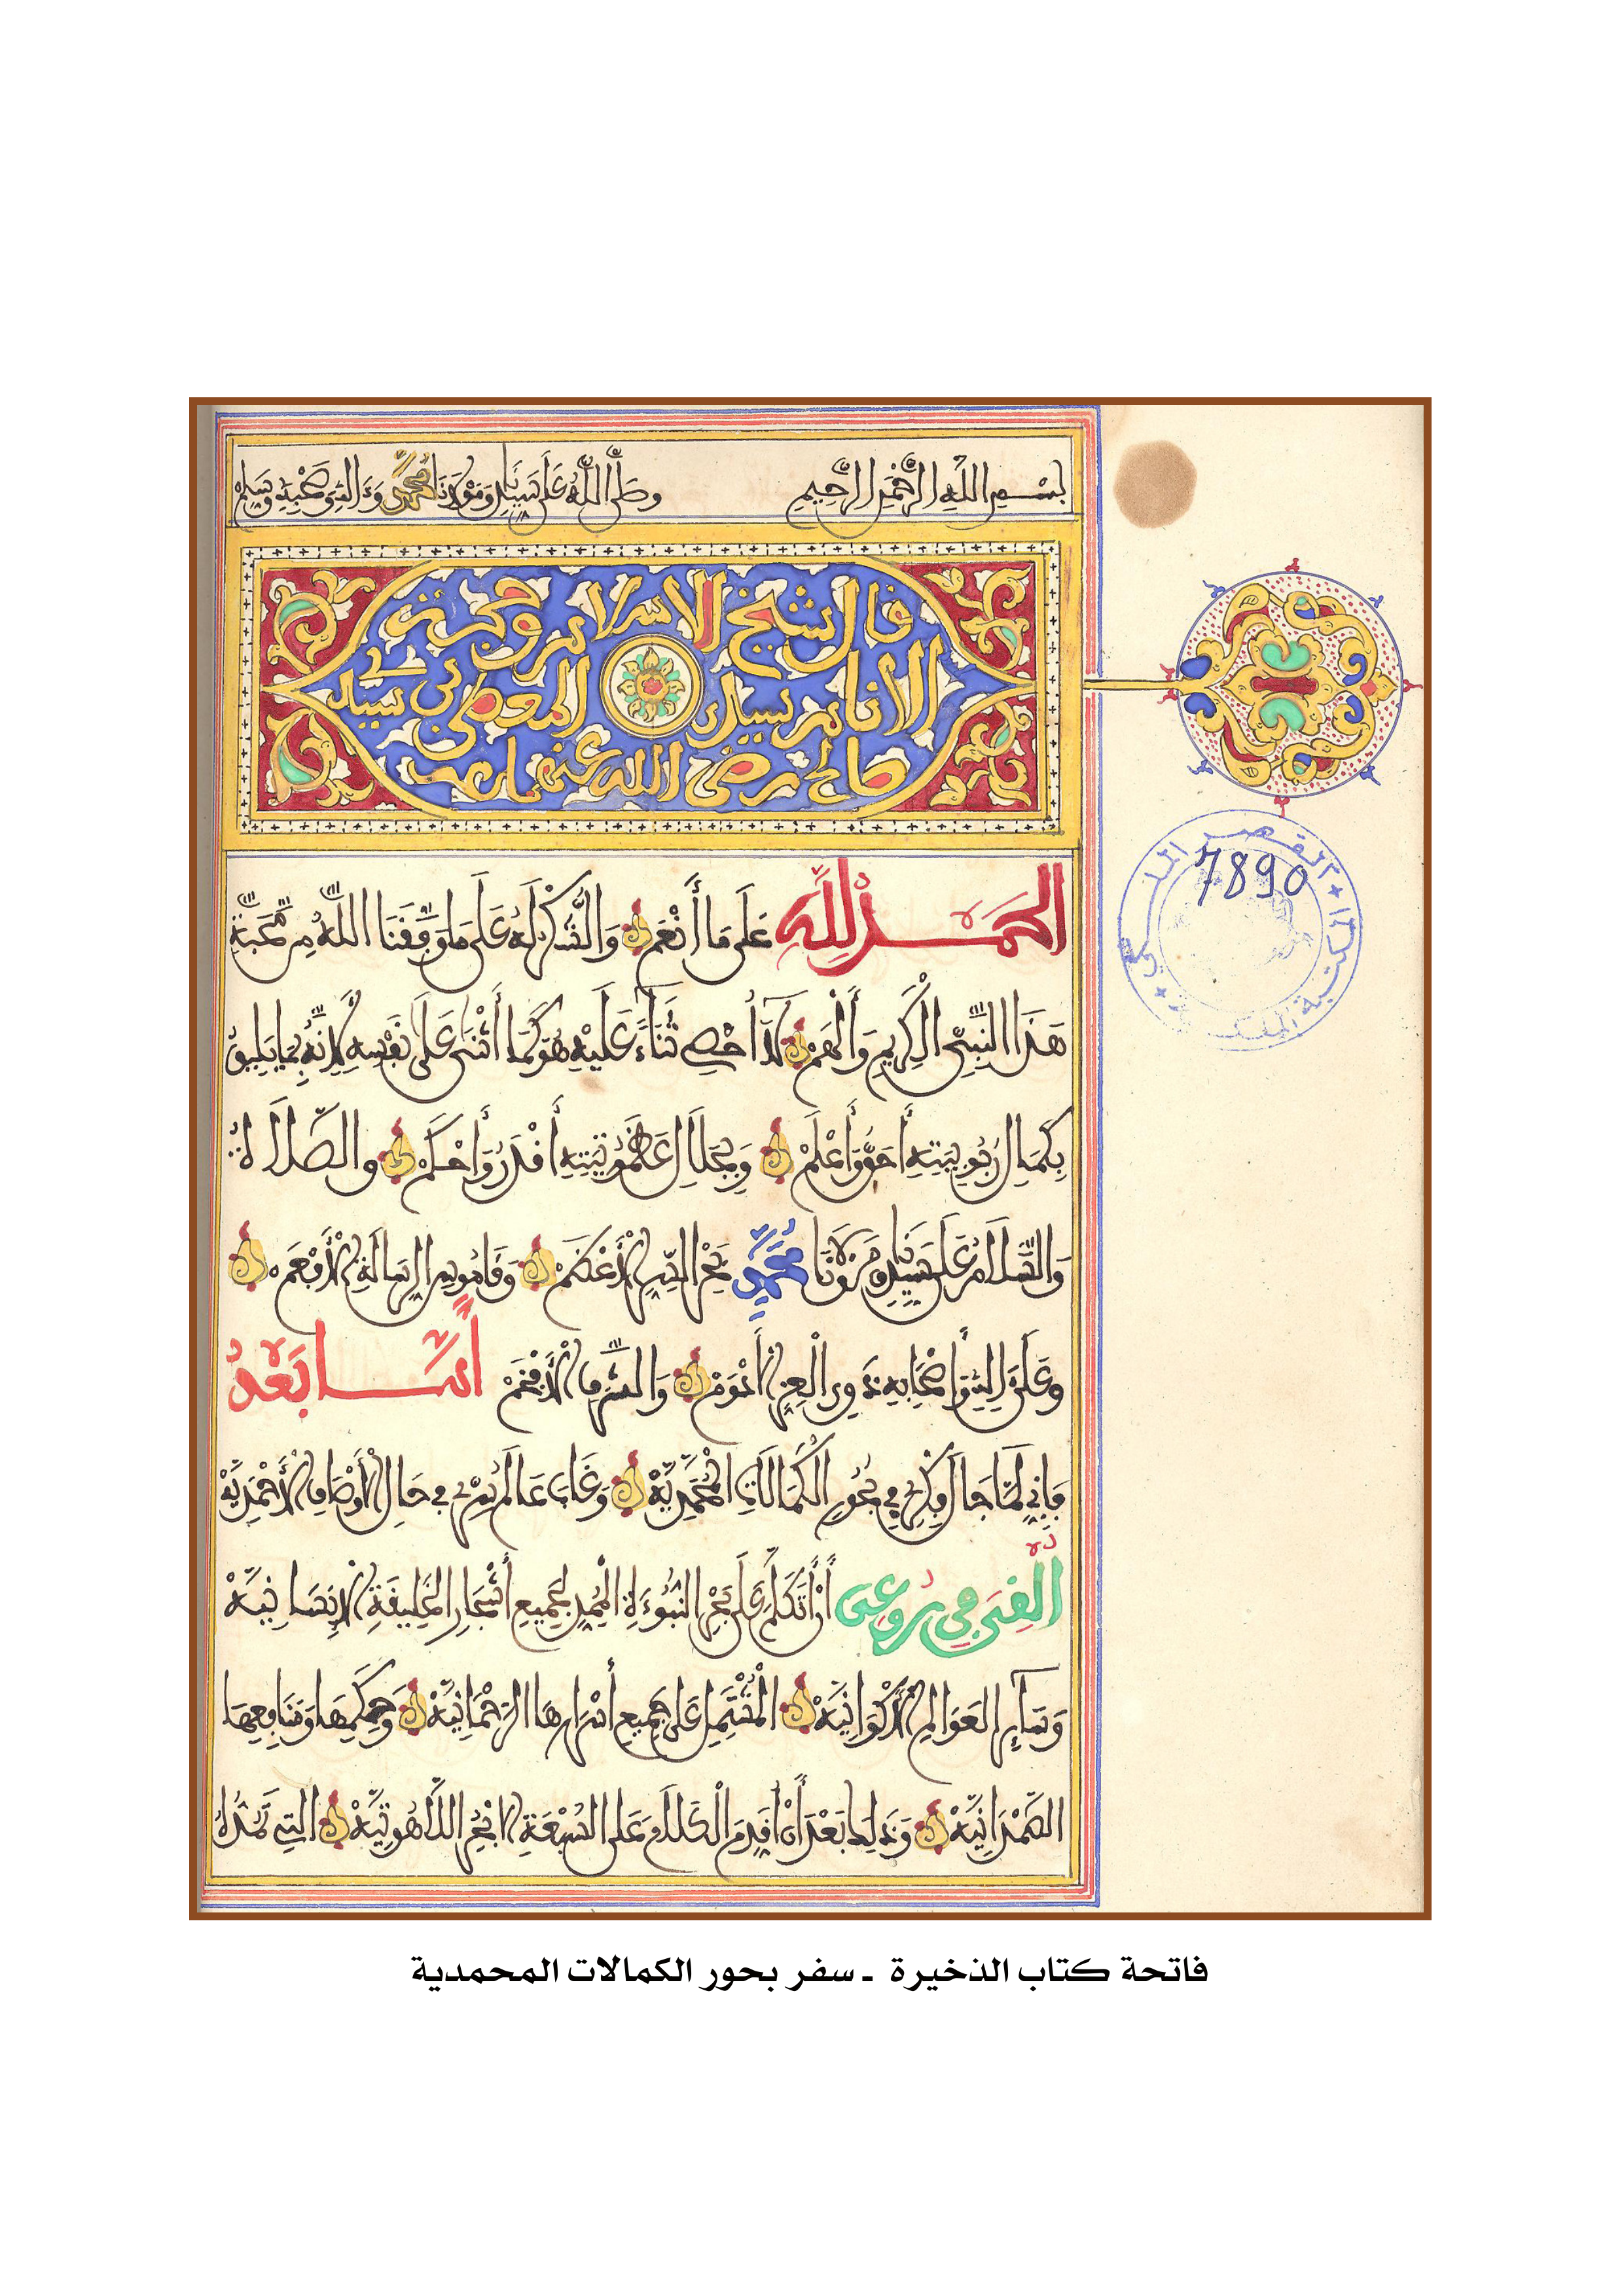 بسم الله الرحمن الرحيم وصلى الله على سيدنا ومولانا محمد وءاله وصحبه وسلم
قال شيخ الاسلام وحجة
الانام سيدي المعطى بن سيدي
صالح رضي الله عنهما
الحمد لله على ما أنعم والشكر له على ما وفقنا الله من محبة
هذا النبي الكريم وألهم لا أحصي ثناء عليه هو كما أثنى على نفسه لأنه بما يليق
بكمال ربوبيته أحق وأعلم وبجلال عظموتيته أقدر وأحكم والصلاة
والسلام على سيدنا ومولانا محمد بحر الدين الأعظم وقاموس الرسالة الأفعم
وعلى ءاله وأصحابه ذوي العز الأدوم والشرف الأفخم أما بعد
فإني لما جال فكري في بحور الكمالات المحمدية وغاب عالم سري في جمال الأوصاف الأحمدية
ألقي في روعي أن أتكلم على بحر النبوءة الممد لجميع أشجار الخليقة الإنسانية
وسائر العوالم الأكوانية المشتمل على جميع أسرارها الرحمانية وحكمها ومنافعها
الصمدانية وذلك بعد أن أقدم الكلام على السبعة الابحر اللاهوتية التي تمده
القصر الملكي
المكتبة الملكية
7890
فاتحة كتاب الذخيرة - سفر بحور الكمالات المحمدية